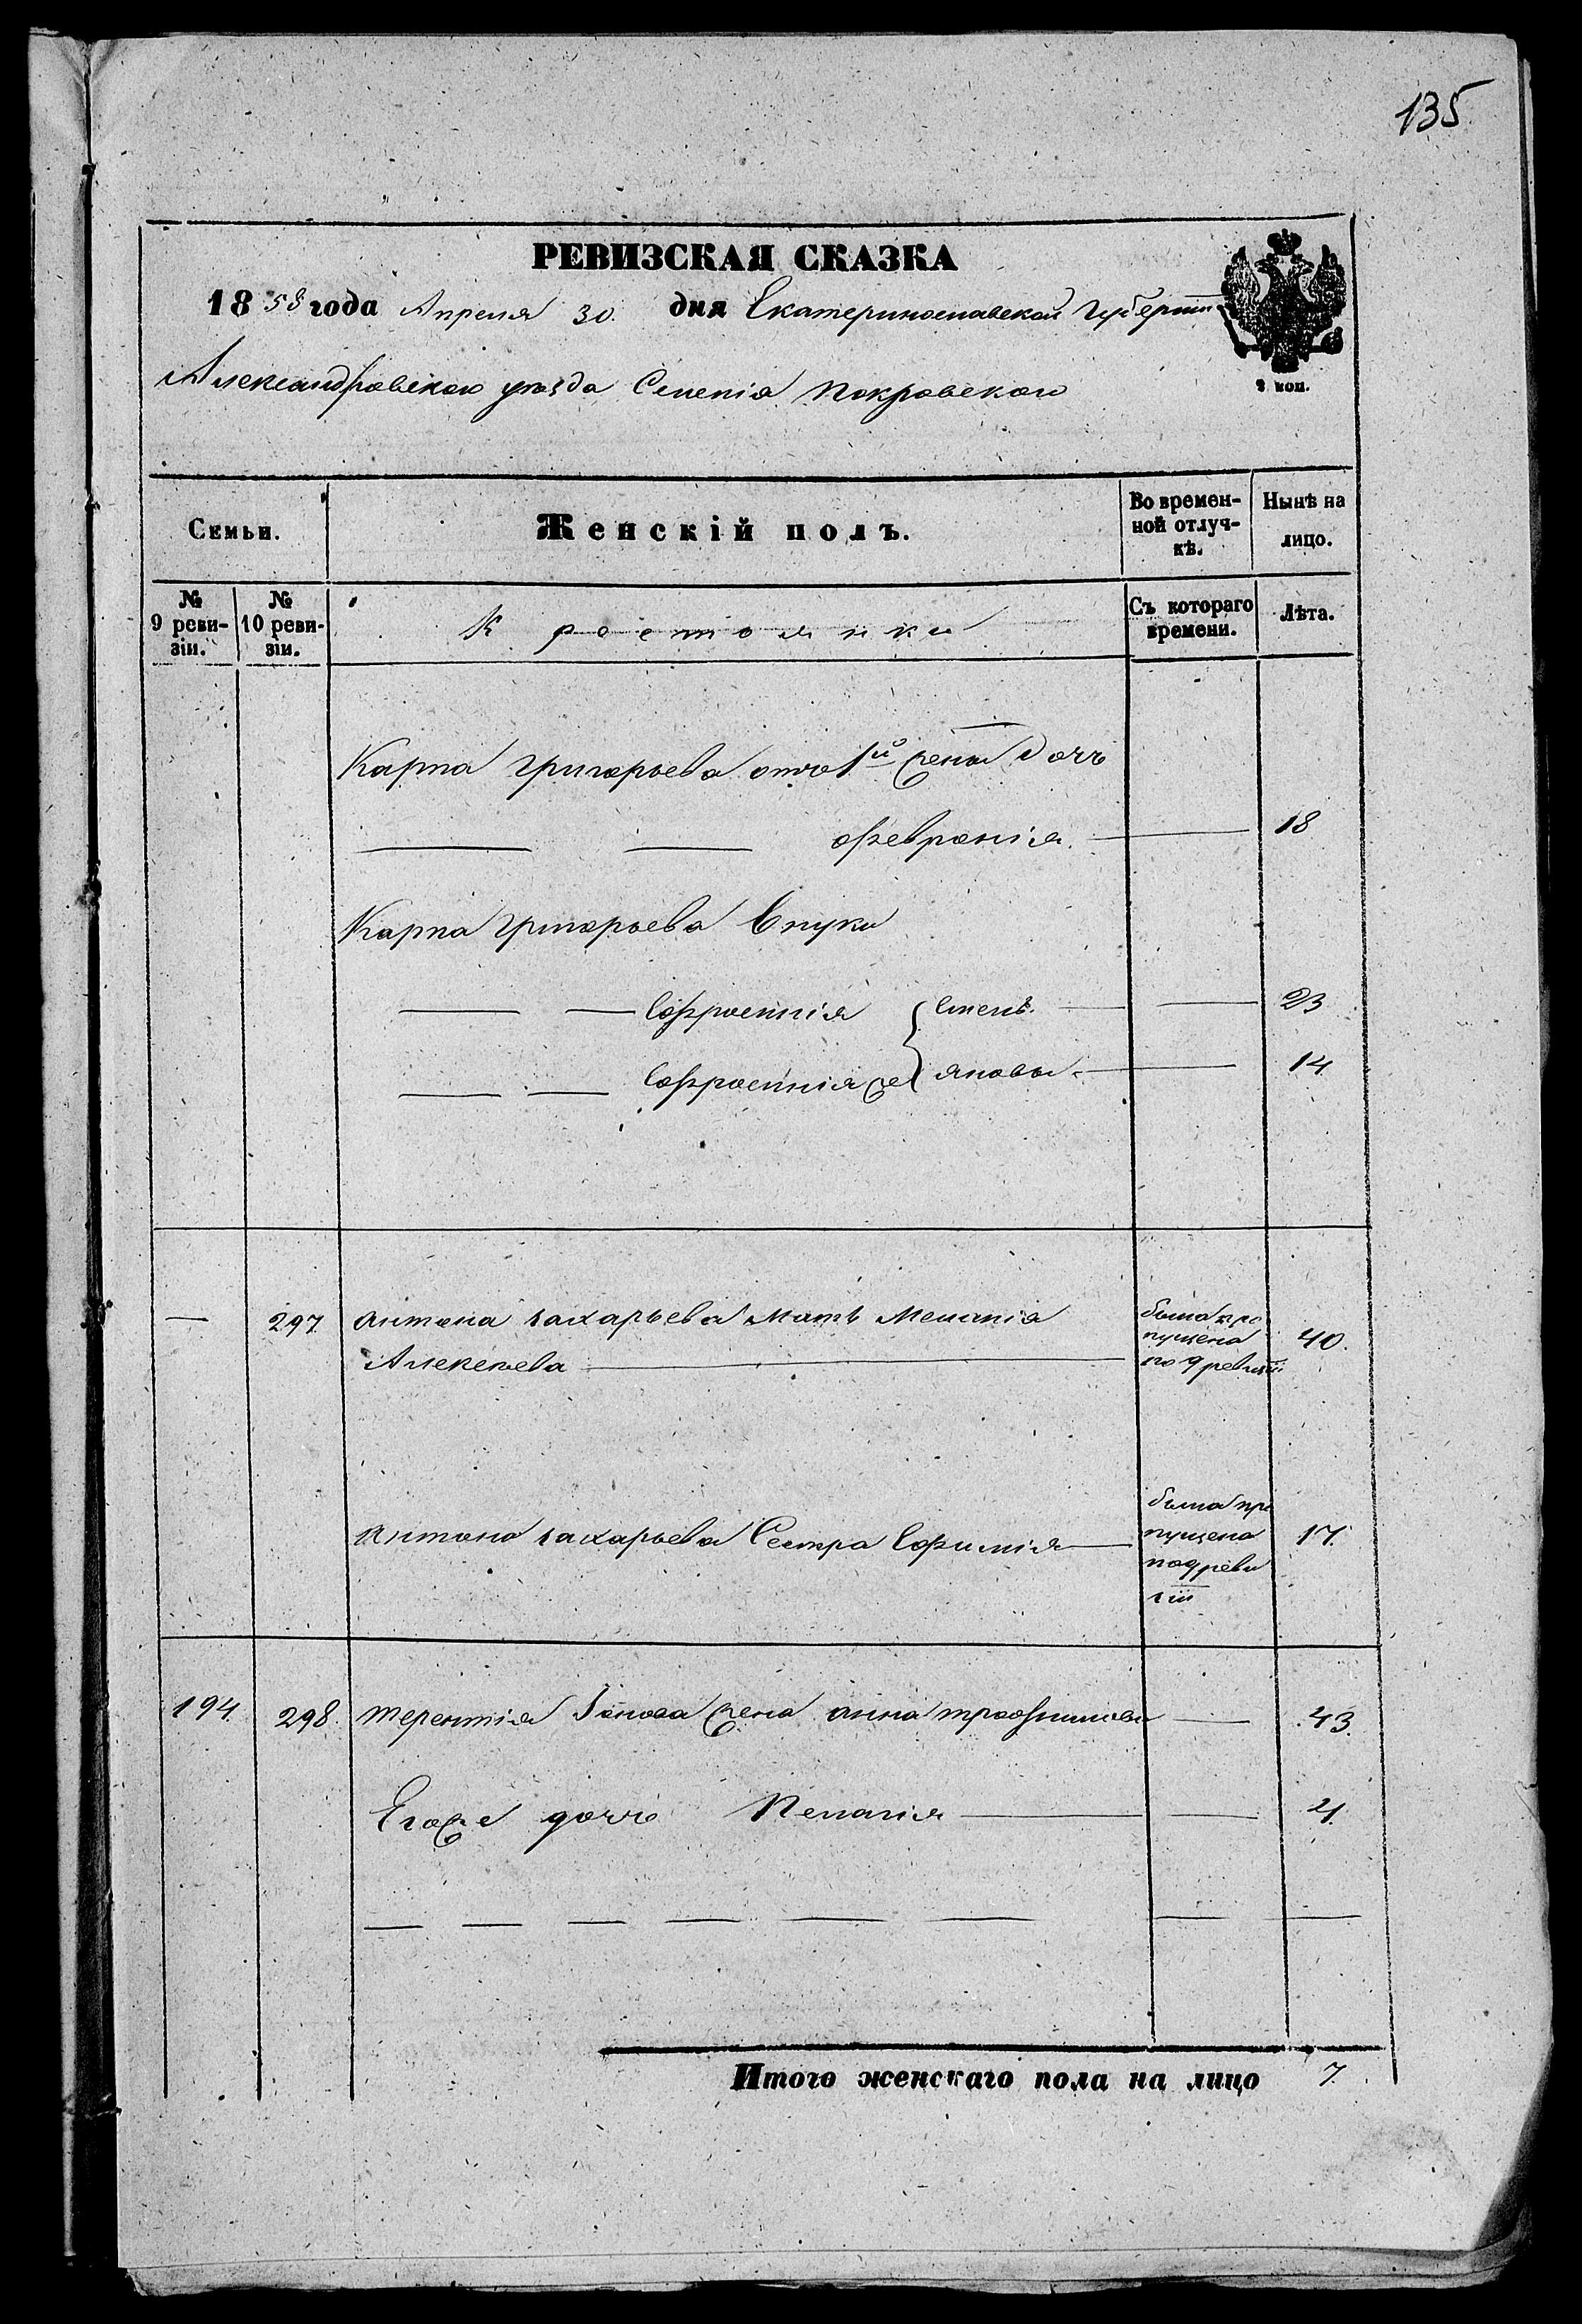 135
РЕВИЗСКАЯ СКАЗКА
1858 года Апреля 30. дня Екатеринославской Губерніи
Александровскаго уѣзда Селенія Покровскаго
2 коп.
Семьи.
Женскій полъ.
Во времен-
ной отлуч-
кѣ.
Нынѣ на
лицо.
№
9 реви-
зіи.
№
10 реви-
зіи.
Крестьянки
Съ котораго
времени.
Лѣта.
Карпа Григорьева отъ 1й жены дочь
Февронія. 18
Карпа Григорьева Внуки
Ефросинія 23
Ефросинія же 14
— 297. Антона Захарьева Мать Меланія
Алексѣева
была про
пущена
по 9 ревизіи
40.
Антона Захарьева Сестра Ефимія
была про
пущена
по 9 реви
зіи
17.
194. 298. Терентія жена Анна Трофимова 43.
Его же дочь Пелагія
Итого женскаго пола на лицо 7.